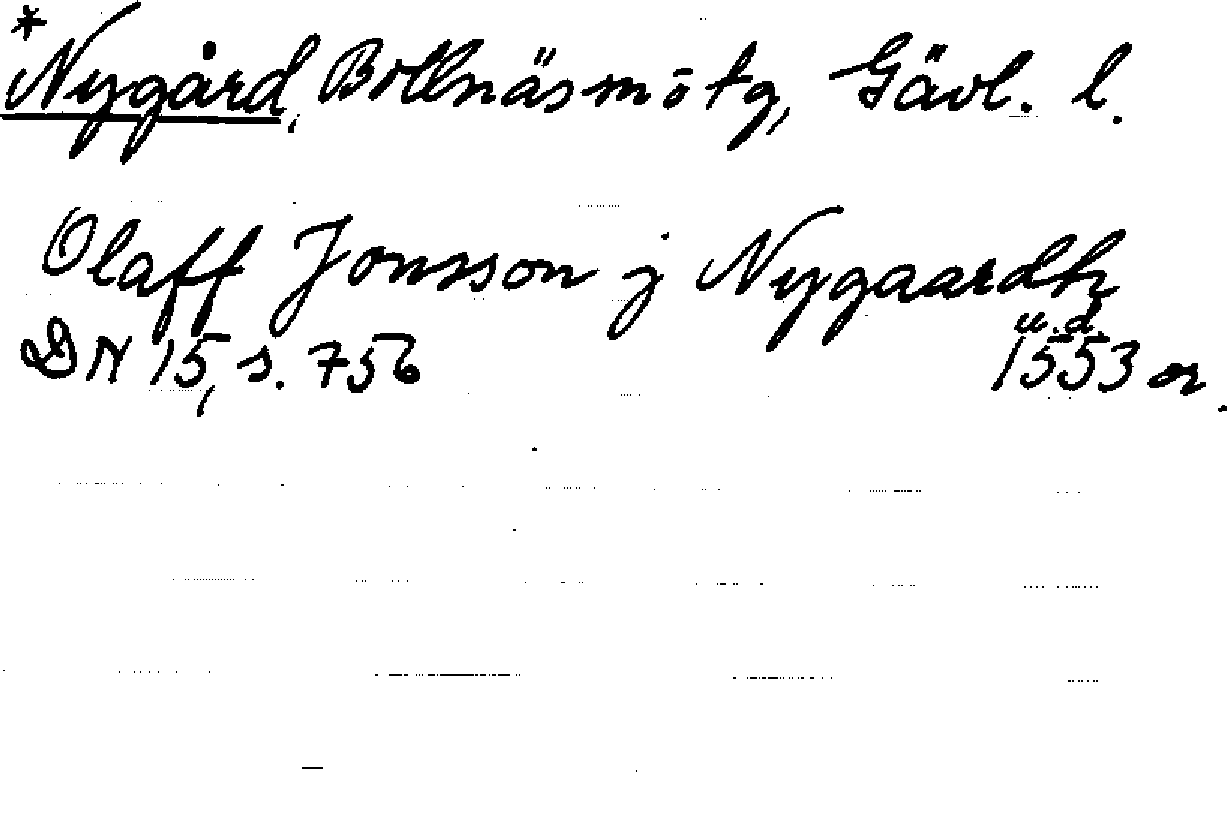 *
Nygård, Bollnäs m ö tg, Gävl. l.
Olaff Jonsson j Nygaardh
u.d.
DN 15, s. 756 1553 or.